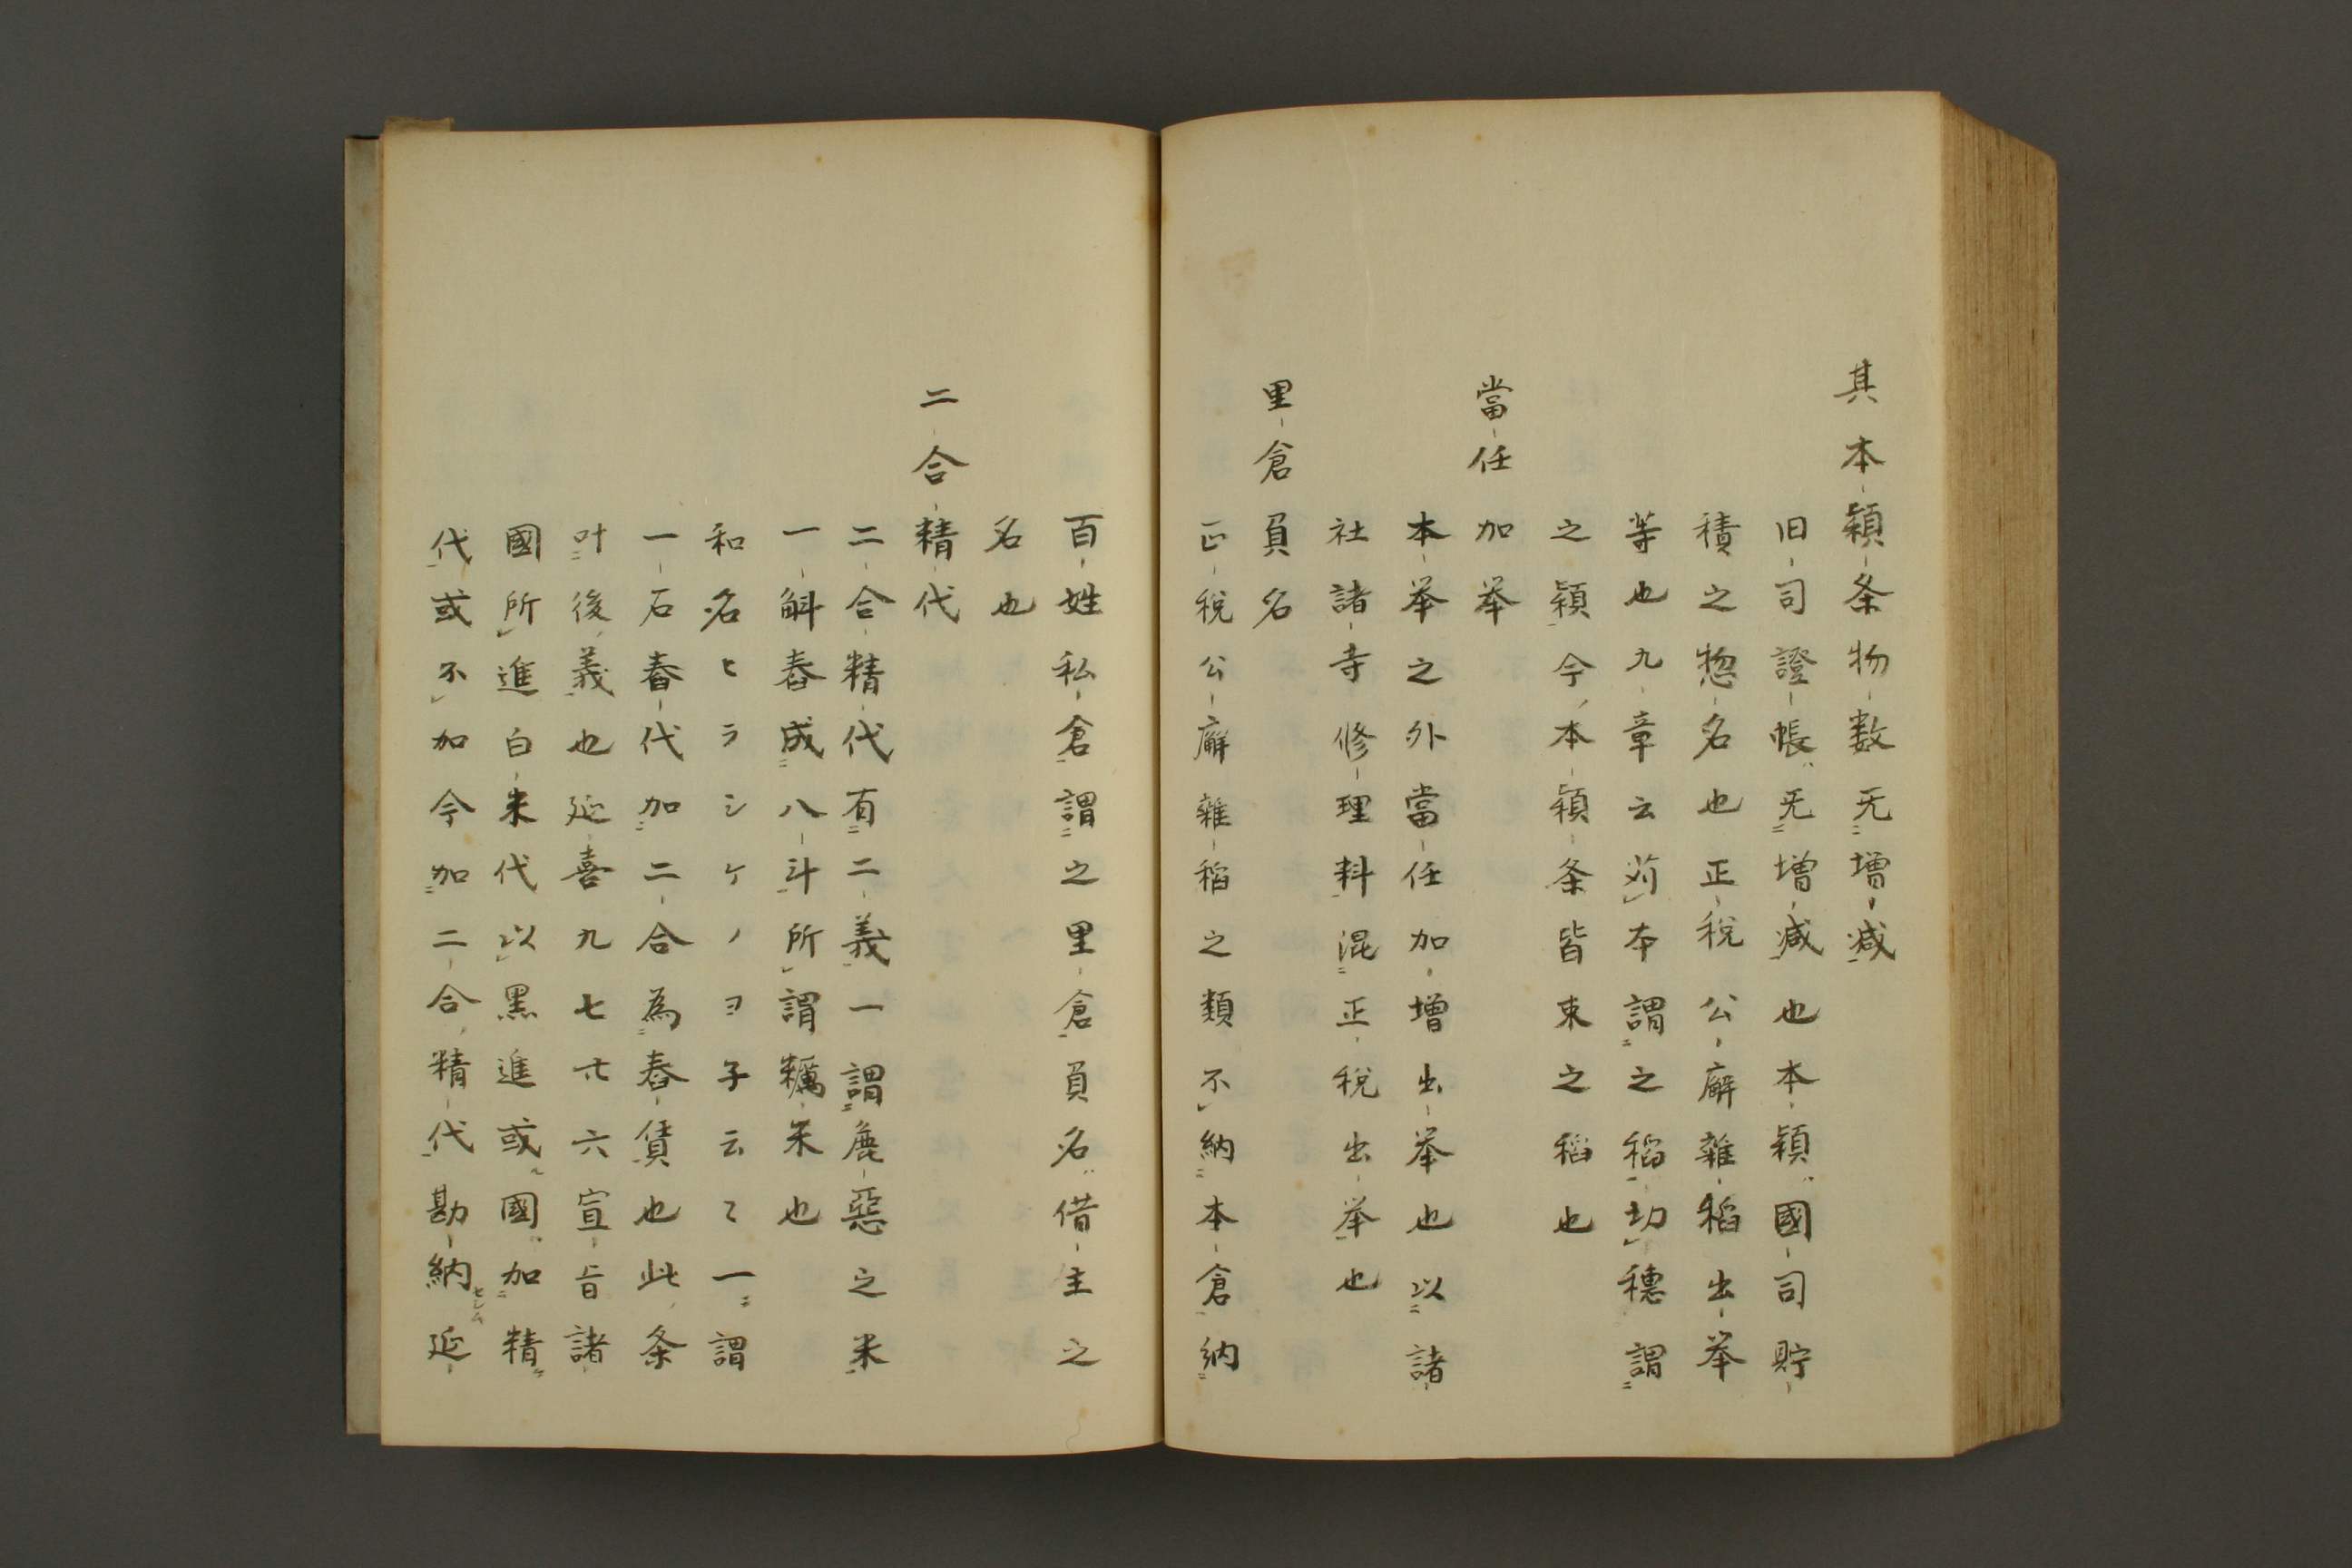 其本穎条物数无増減
旧司證帳无増減也本穎國司貯
積之惣名也正税公廨雜稲出挙
等也九章云苅本謂之稲切穂謂
之穎今本穎条皆束之稲也
當任加挙
本挙之外當任加増出挙也以諸
社諸寺修理料混正税出挙也
里倉負名
正税公廨雜稲之類不納本倉納
百姓私倉謂之里倉負名借主之
名也
二合精代
二合精代有二義一謂麁惡之米
一斛舂成八斗所謂糲米也
和名ヒラシケノヨ子云〻一謂
一石舂代加二合為舂賃也此条
叶後義也延喜九七廿六宣旨諸
國所進白米代以黒進或國加精
代或不加今加二合精代勘納セシム延